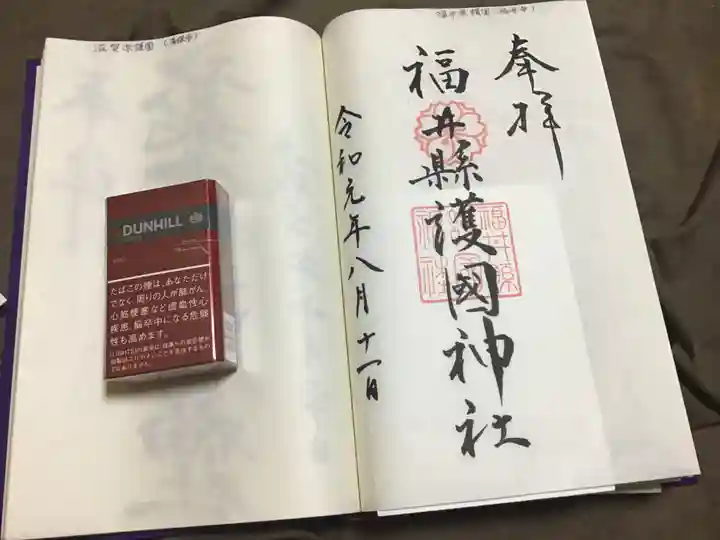 奉拝
福井縣護國神社
令和元年八月十一日
福井県護國(福井市)
滋賀県護国
DUNHILL
たばこの煙は、あなただけ
でなく、周りの人が肺がん、
心筋梗塞など虚血性心
疾患、脳卒中になる危険
性も高めます。